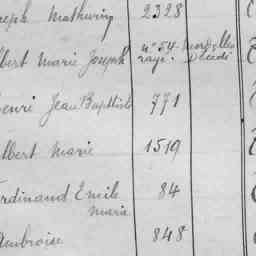 seph Mathurin 2328
lbert Marie Joseph n° 54
rayé. Décédé
enri Jean Baptiste 771
lbert Marie 1519
rdinand Emile 84
Marie
Ambroise 848